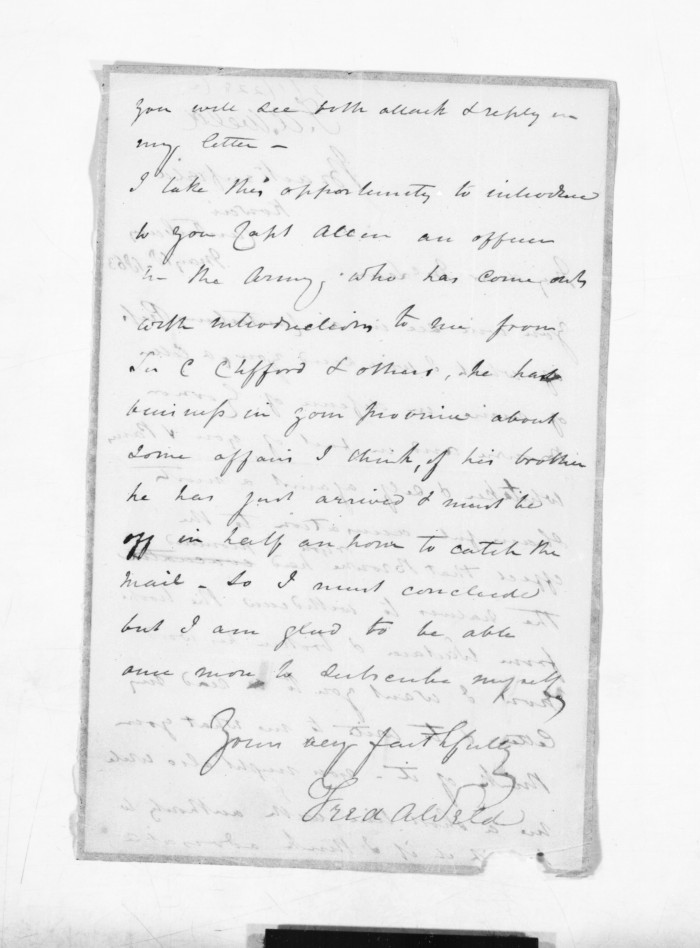 you will see both attack & reply in
my letter -
I take this opportunity to introduce
to you Capt Allen an officer
in the Army, who has come out
with introductions to me from
Sir C Clifford & others, he has
business in your province about
some affairs I think, of his brother
he has just arrived & must be
off in half an hour to catch the
mail - so I must conclude
but I am glad to be able
once more to subscribe myself
Yours very faithfully
Fred A Weld